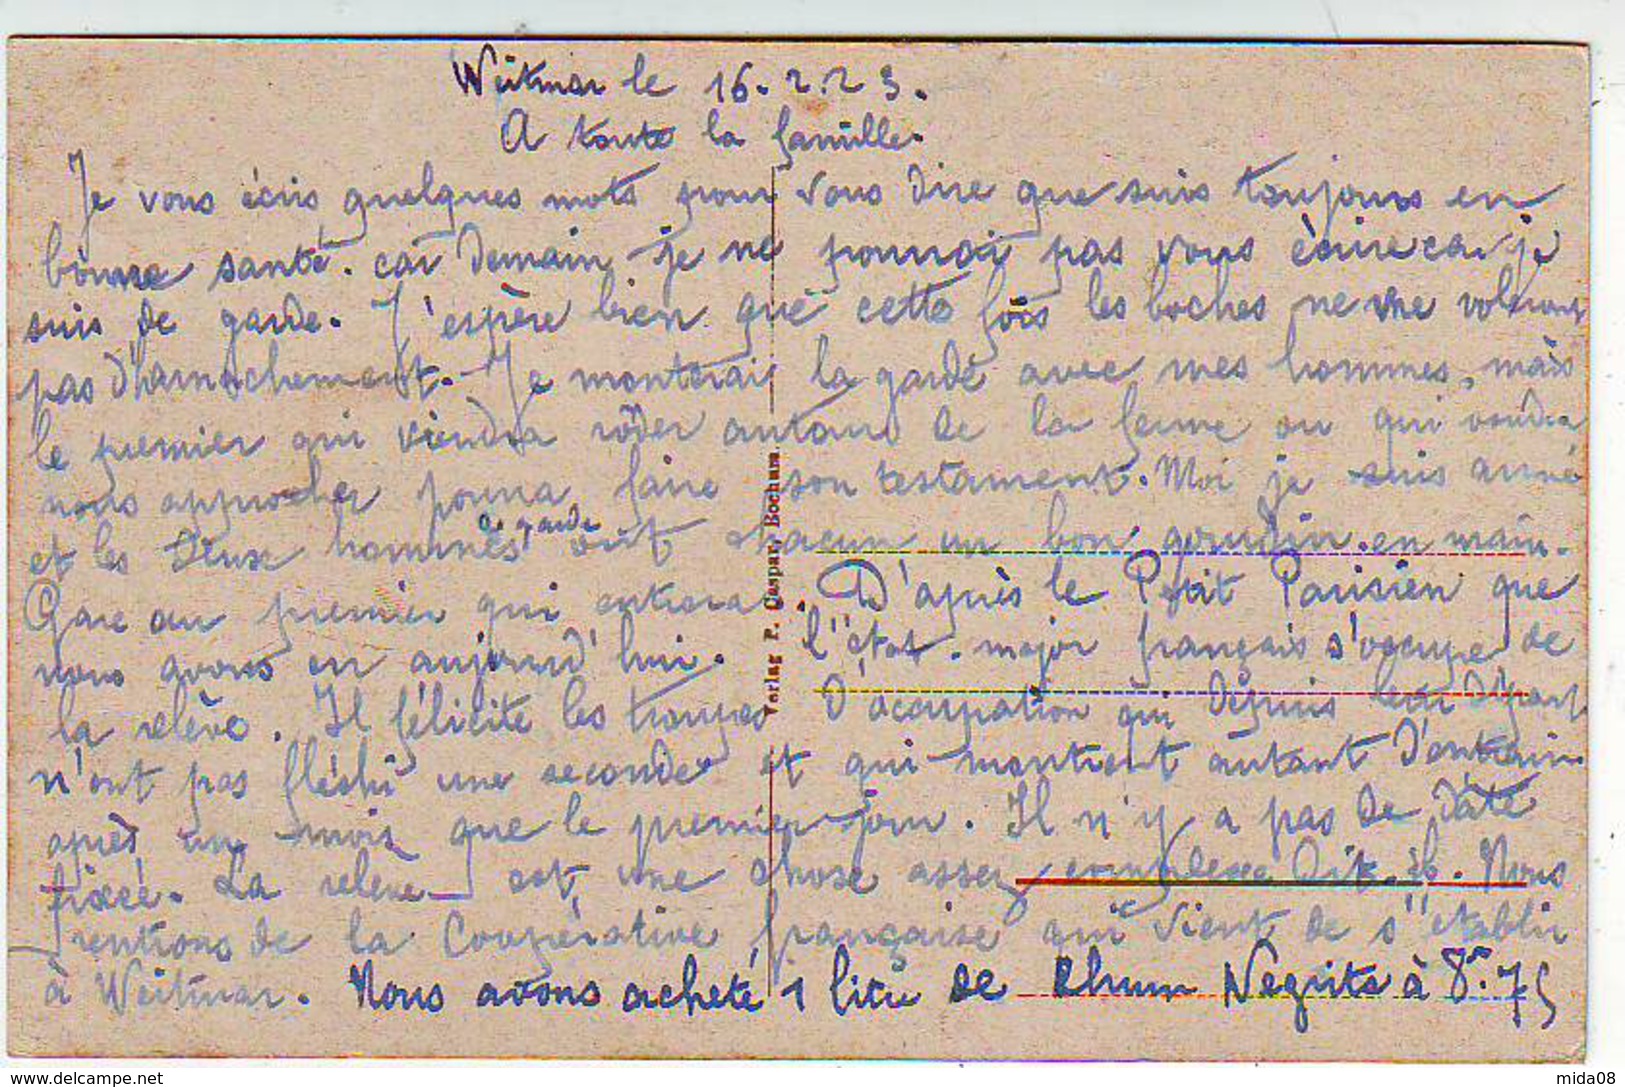 Weitmar le 16.2.23.
A toute la famille.
Je vous écris quelques mots pour vous dire que suis toujours en
bonne santé. car demain je ne pourrai pas vous écrire car je
suis de garde. J'espère bien que cette fois les boches ne me volerons
pas d'harnachement. Je monterai la garde avec mes hommes, mais
le premier qui viendra rôder autour de la ferme ou qui voudra
nous approcher pourra faire son testament. Moi je suis armé
et les deux hommes de garde ont chacun un bon gourdin en main.
Gare au premier qui entrera. D'après le Petit Parisien que
nous avons eu aujourd'hui. l'état-major français s'occupe de
la relève. Il félicite les troupes d'occupation qui depuis leur départ
n'ont pas fléchi une seconde et qui montrent autant d'entrain
après un mois que le premier jour. Il n'y a pas de date
fixée. La relève est une chose assez complexe dit-il. Nous
rentrons de la Coopérative française qui vient de s'etablir
à Weitmar. Nous avons acheté 1 litre de Rhum Negrita à 8f.75
Verlag P. Gaspar, Bochum.
mida08